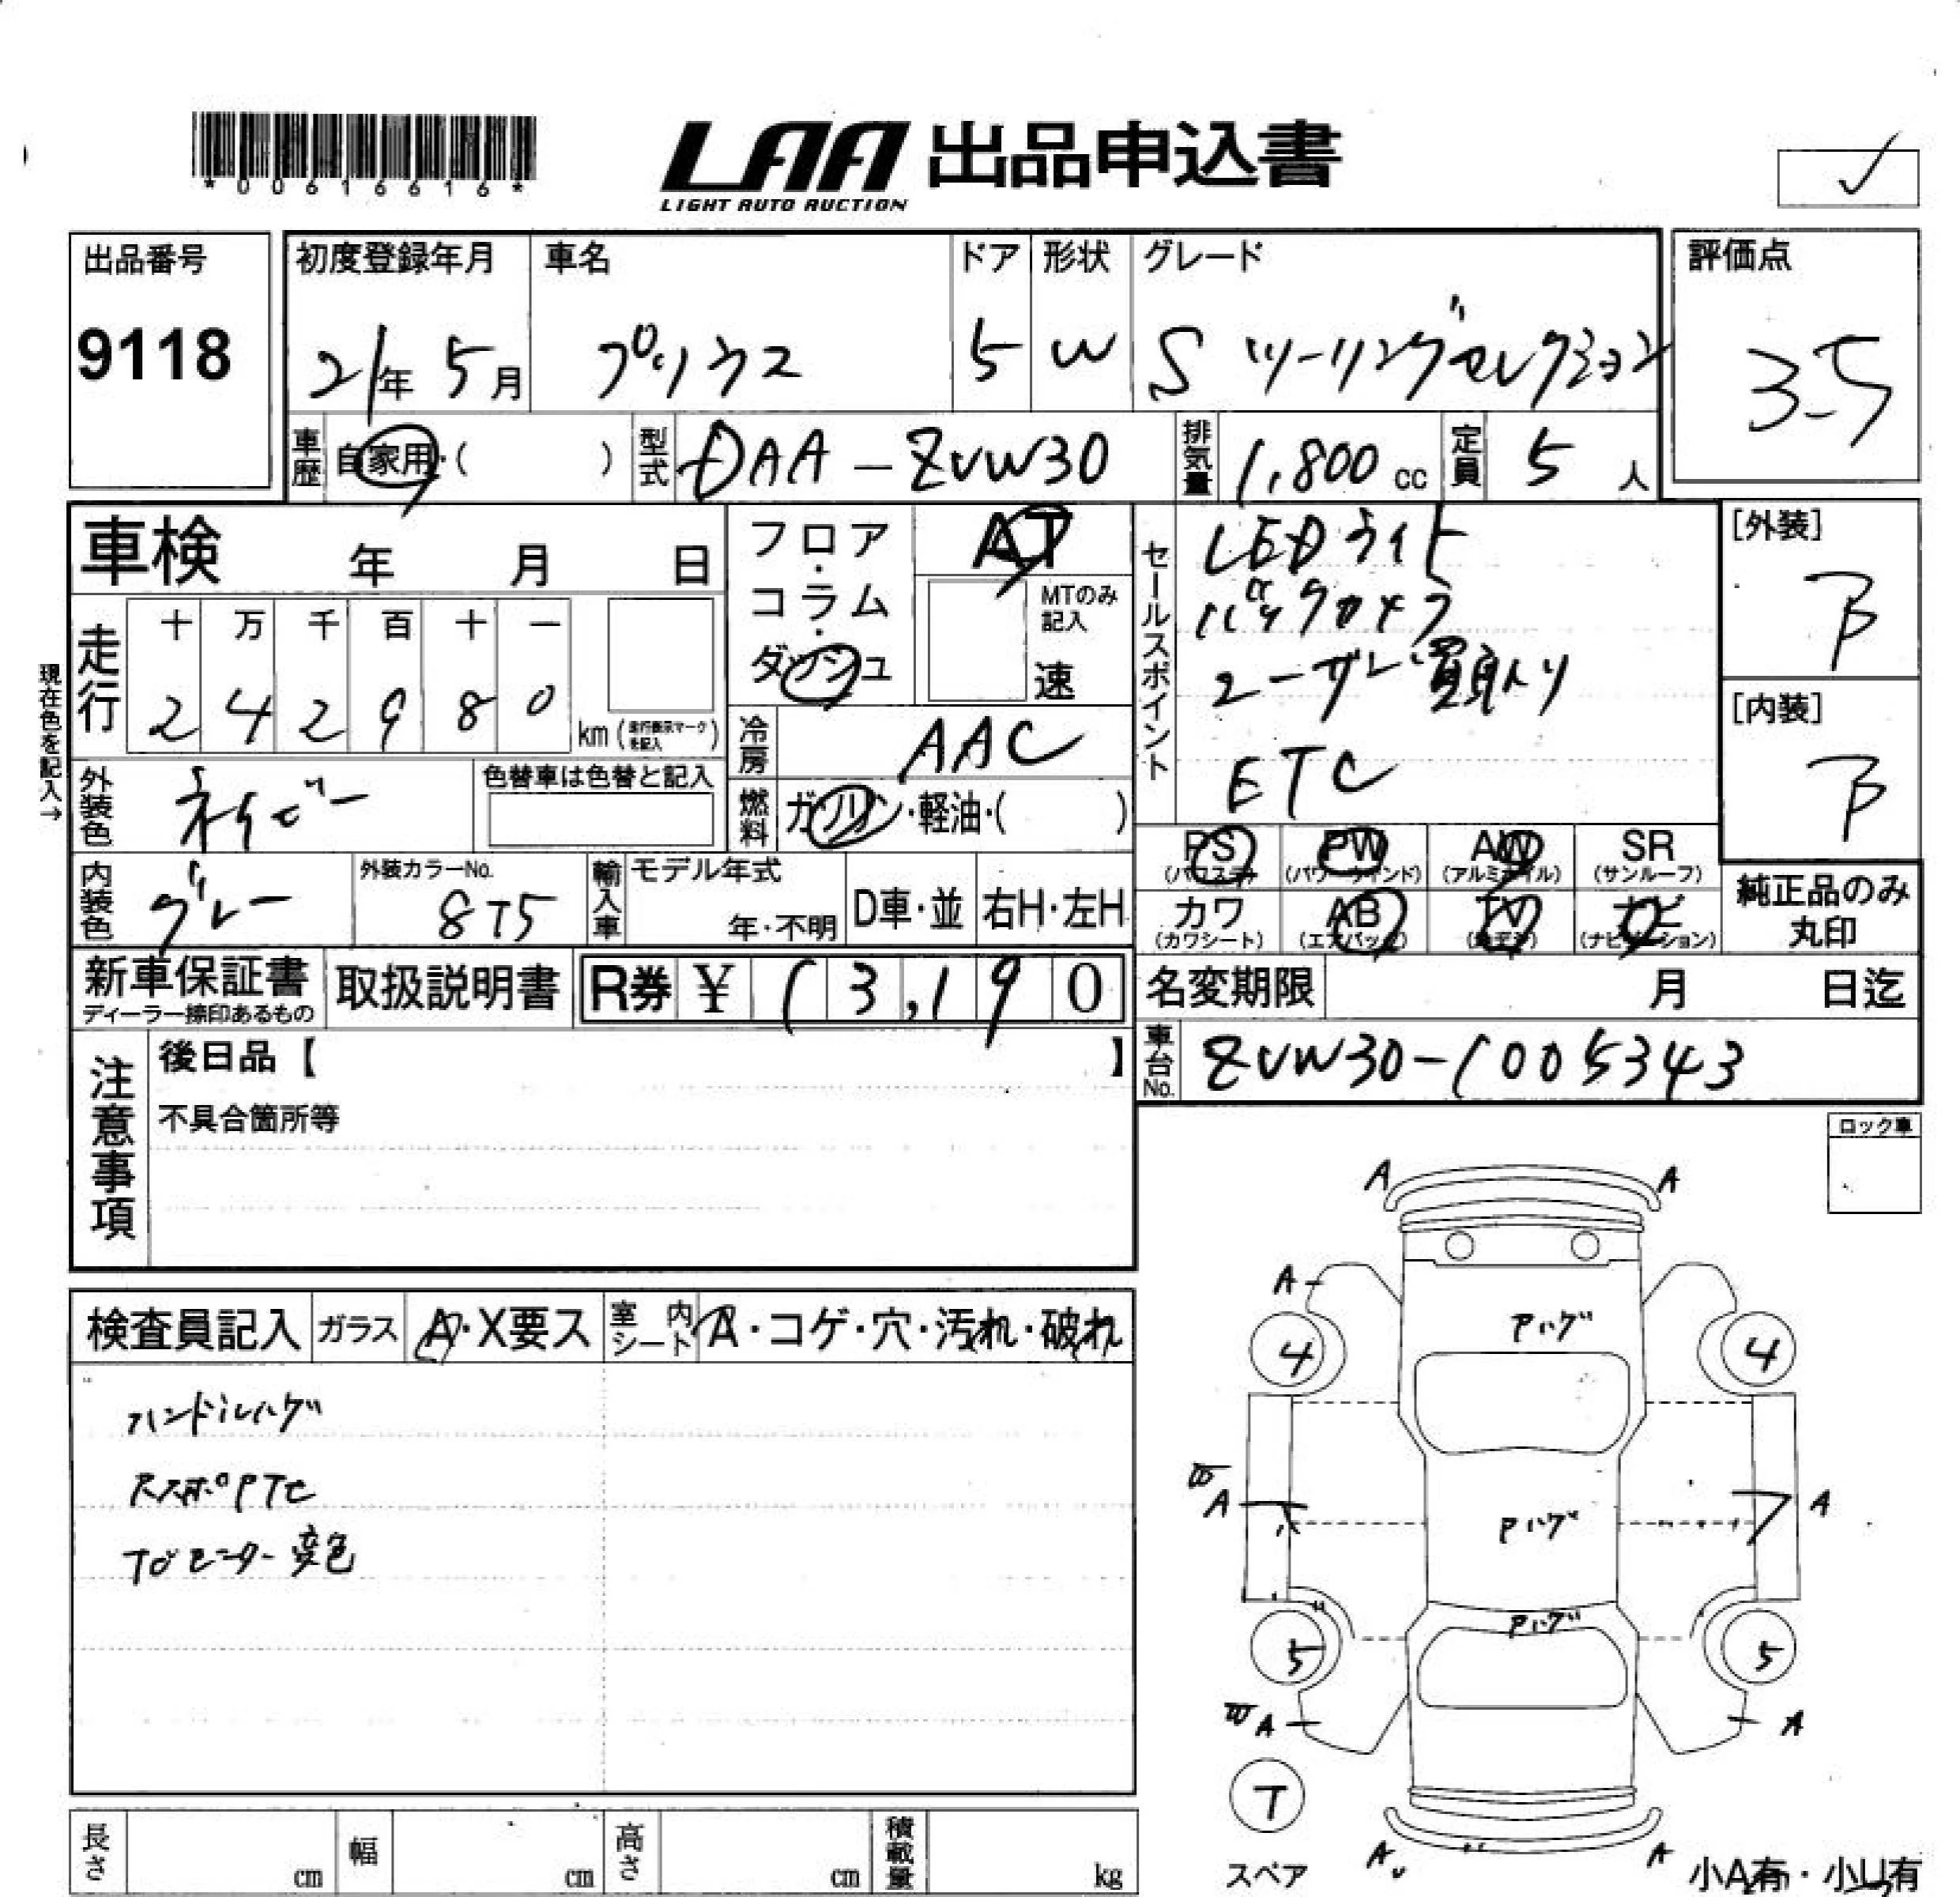 *00616616*
LAA 出品申込書
LIGHT AUTO AUCTION
出品番号
9118
初度登録年月
21年 5月
車名
プリウス
ドア
5
形状
W
グレード
S ツーリングセレクション
評価点
3.5
車歴
自家用・( )
型式
DAA-ZVW30
排気量
1,800 cc
定員
5 人
車検 年 月 日
フロア・コラム・ダッシュ
AT
MTのみ記入
速
現在色を記入→
走行
十 万 千 百 十 一
2 4 2 9 8 0
km (走行表示マークを記入)
冷房
AAC
燃料
ガソリン・軽油・( )
外装色
ネイビー
色替車は色替と記入
内装色
グレー
外装カラーNo.
8T5
輸入車
モデル年式
年・不明
D車・並
右H・左H
セールスポイント
LEDライト
バックカメラ
ユーザー買取り
ETC
[外装]
B
[内装]
B
PS
(パワステ)
PW
(パワーウインド)
AW
(アルミホイル)
SR
(サンルーフ)
カワ
(カワシート)
AB
(エアバッグ)
TV
ナビ
(ナビゲーション)
純正品のみ
丸印
新車保証書
ディーラー捺印あるもの
取扱説明書
R券 ¥ 13,190
名変期限 月 日迄
車台No.
ZVW30-1005343
注意事項
後日品【 】
不具合箇所等
ロック車
検査員記入
ガラス
A・X要ス
室内シート
A・コゲ・穴・汚れ・破れ
ハンドルハゲ
TVモニター変色
A A
A
4 4
Pハゲ
A A
Pハゲ
Pハゲ
5 5
A A
T
スペア
A A
小A有・小U有
長さ cm
幅 cm
高さ cm
積載量 kg